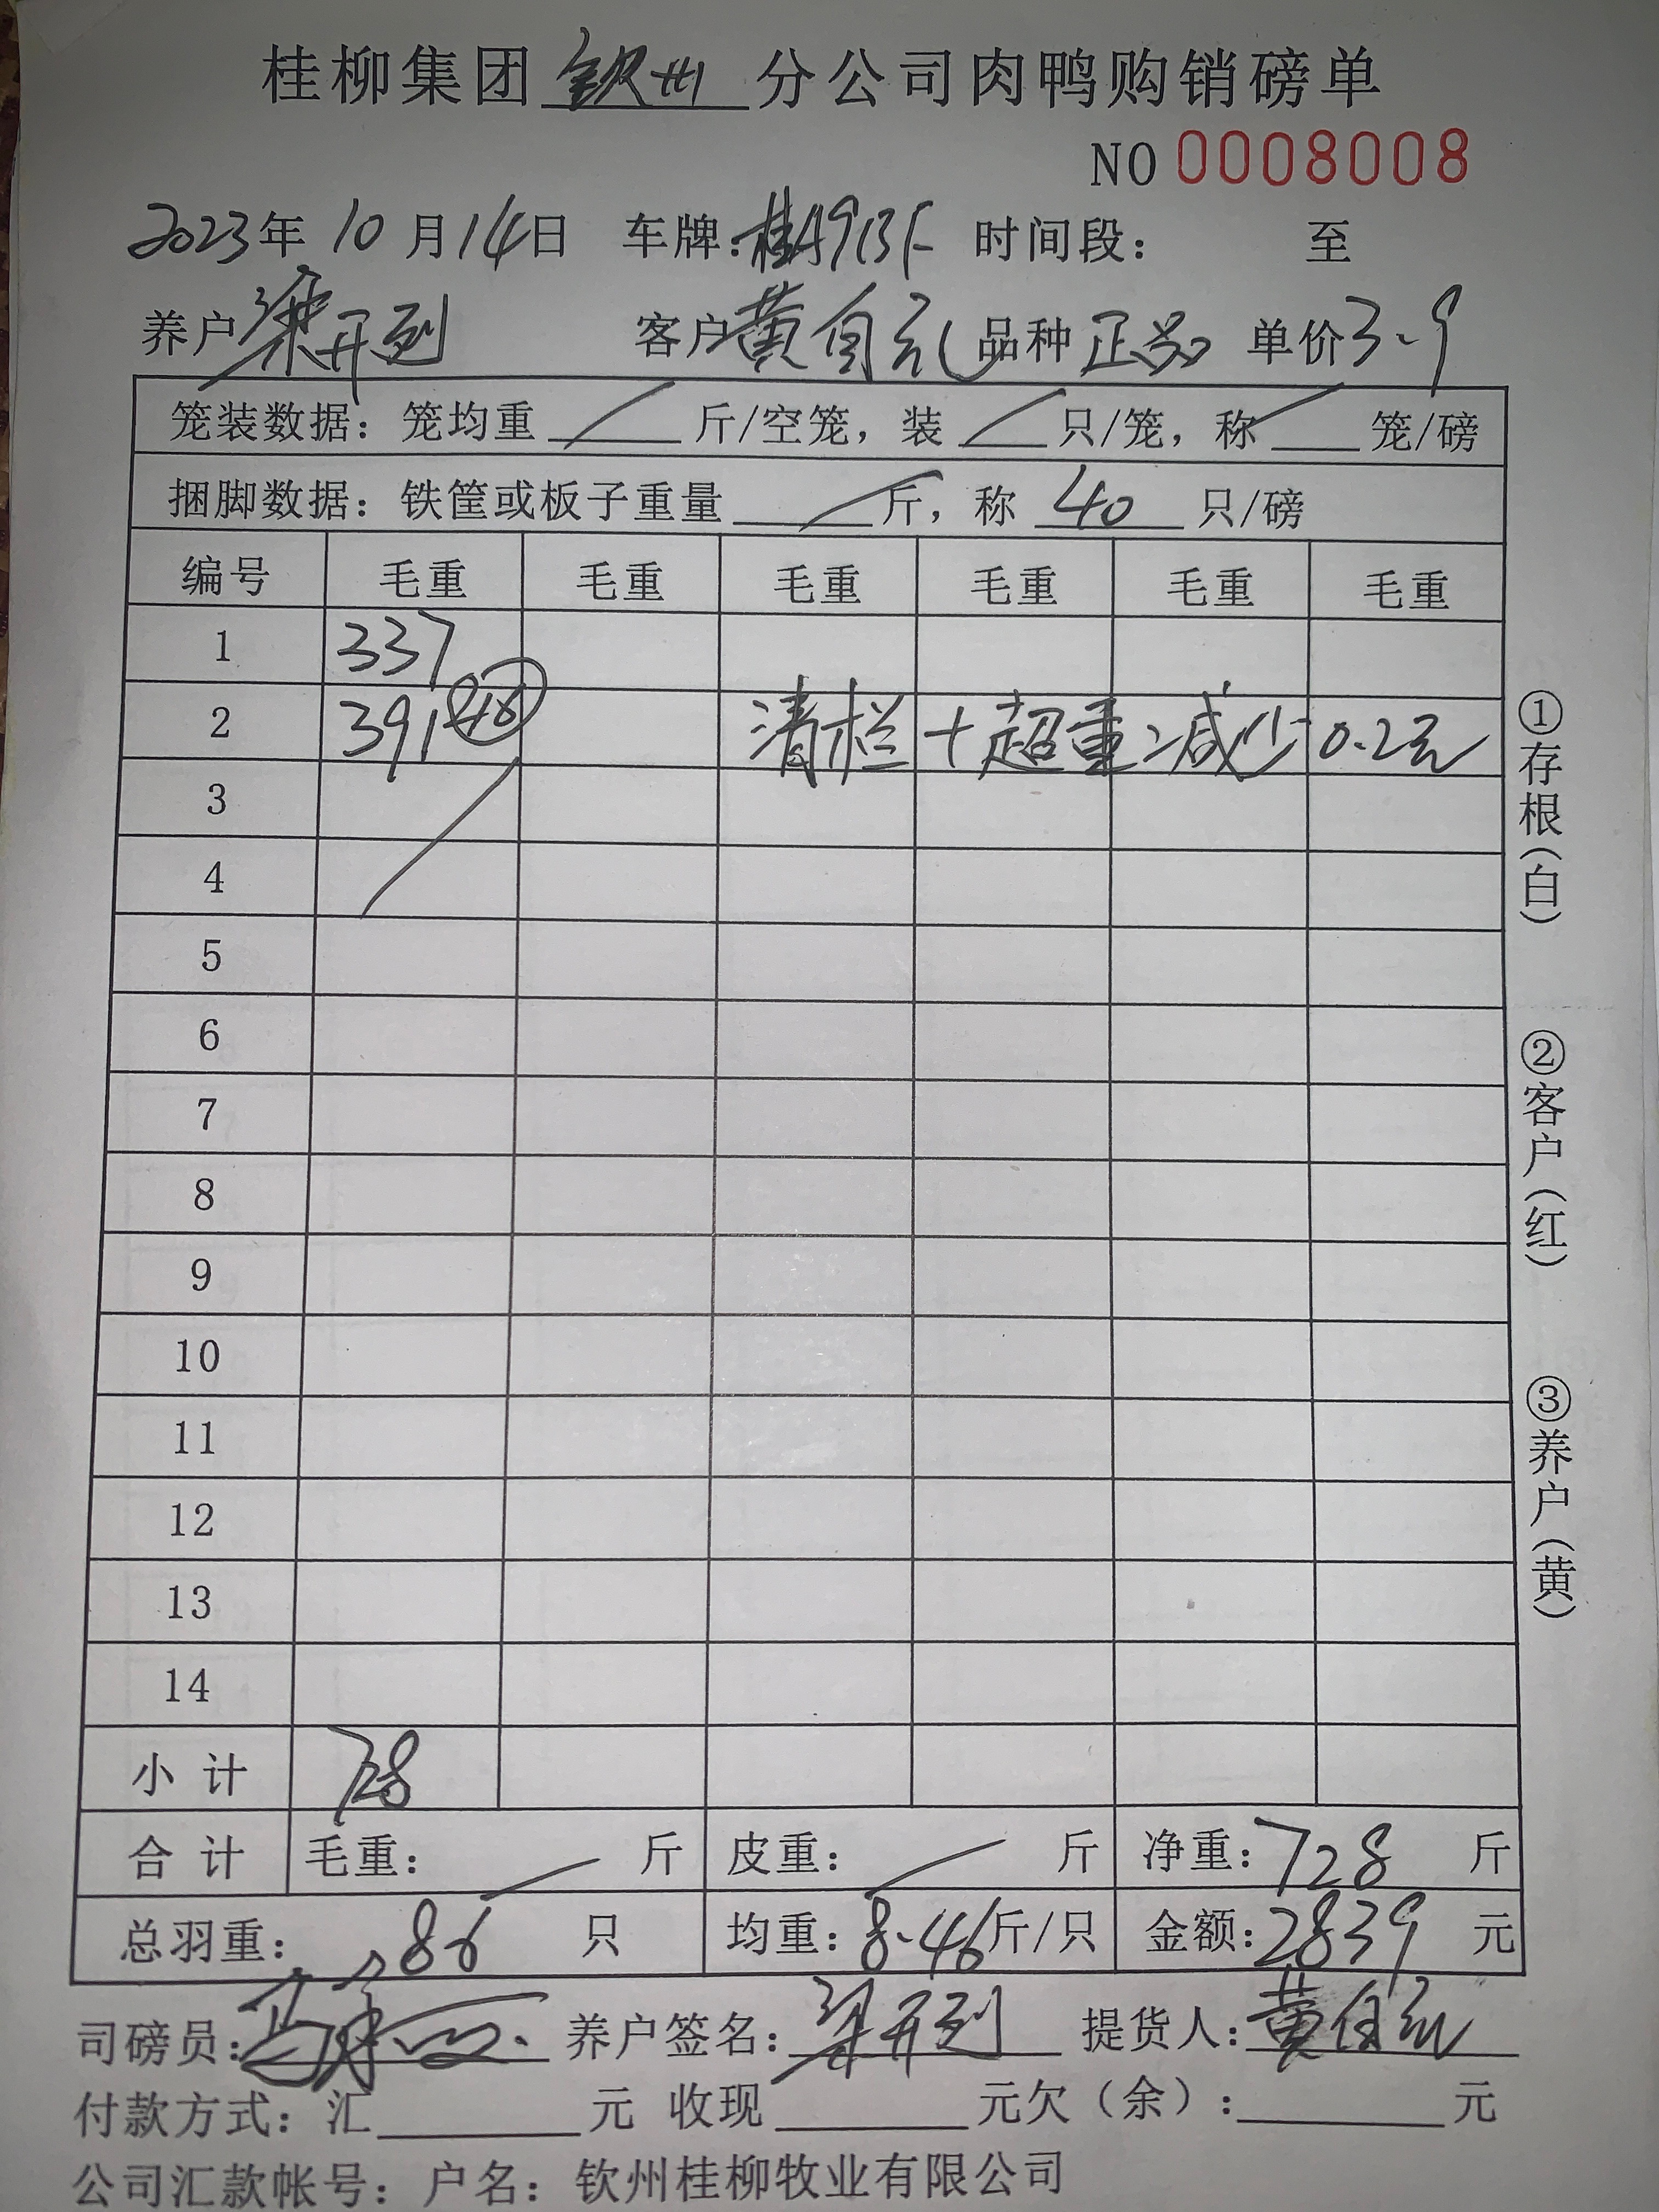 桂柳集团钦州分公司肉鸭购销磅单
NO 0008008
2023年10月14日 车牌: 时间段: 至
养户梁开烈 客户黄自礼 品种正品 单价3.9
笼装数据: 笼均重 斤/空笼, 装 只/笼, 称 笼/磅
捆脚数据: 铁筐或板子重量 斤, 称 40 只/磅
编号 毛重 毛重 毛重 毛重 毛重 毛重
1 337
2 391 46 清栏+超重减少0.2元
3
4
5
6
7
8
9
10
11
12
13
14
小计 728
合计 毛重: 斤 皮重: 斤 净重: 728 斤
总羽重: 86 只 均重: 8.46斤/只 金额: 2839 元
司磅员: 养户签名: 梁开烈 提货人: 黄
付款方式: 汇 元 收现 元欠(余): 元
公司汇款帐号: 户名: 钦州桂柳牧业有限公司
①存根(白)
②客户(红)
③养户(黄)